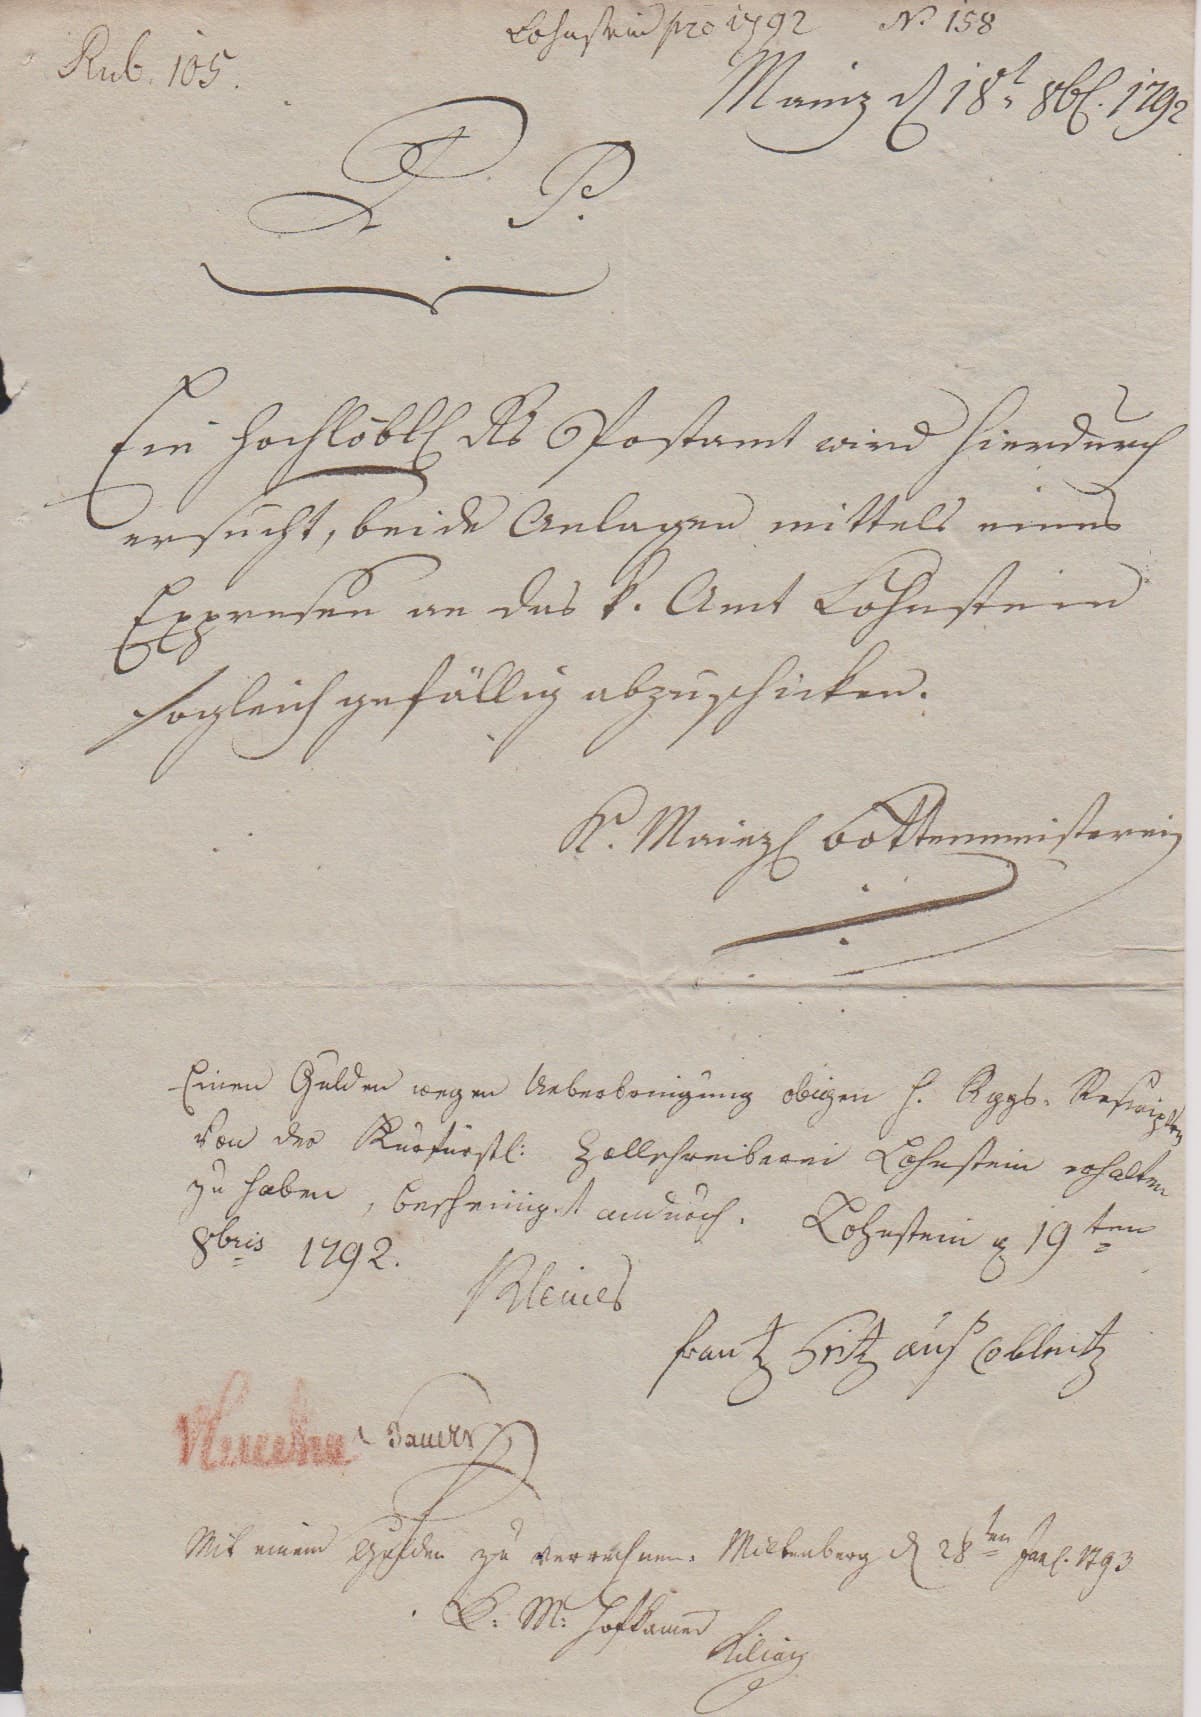 Lohnstein pro 1792 N. 158
Rub. 105.
Mainz d 18t 8b. 1792
P. P.
Ein hochlöbl Postamt wird hierdurch
ersucht, beide Anlagen mittels eines
Expressen an das k. Amt Lohnstein
sogleich gefällig abzuschicken.
K. Mainz Bottenmeisterei
Einen Gulden wegen Ueberbringung obigen h. Rggs. Rescripts
von der Kurfürstl: Zollschreiberei Lohnstein erhalten
zu haben, bescheinigt andurch. Lohnstein d 19ten
8bris 1792.
frantz Fritz auß Coblentz
Bauer
Mit einem Gulden zu verrechnen. Miltenberg d 28ten Jan. 1793
K. M: Hofkammer
Kilian